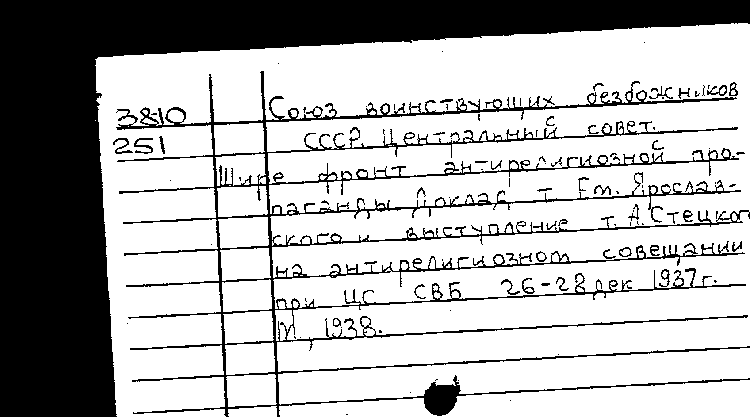 3810 Союз воинствующих безбожников
251 СССР. Центральный совет.
Шире фронт антирелигиозной про-
паганды. Доклад т. Ем. Ярослав-
ского и выступление т. А. Стецког
на антирелигиозном совещании
при ЦС СВБ 26-28 дек 1937 г.
М., 1938.